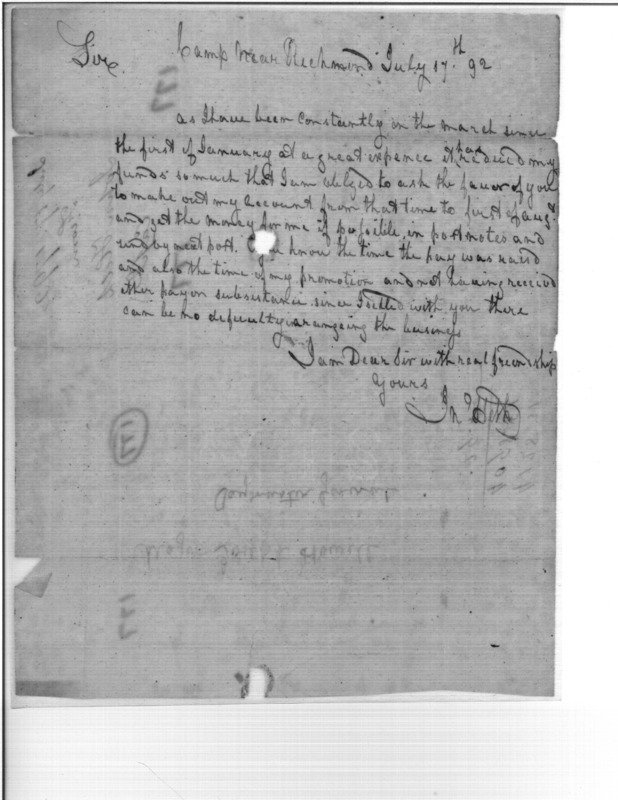 Camp Near Richmond July 17th 92
Sir
as I have been constantly on the march since
the first of January at a great expence it has reduced my
funds so much that I am obliged to ask the favor of you
to make out my account from that time to first of augt.
and get the money for me if possible in post notes and
send by next post. you know the time the pay was raisd
and also the time of my promotion and not having receivd
ether pay or subsistance since I setled with you there
can be no deficulty in arangeing the business
I am Dear Sir with real freindship
Yours
Jno Heth
177
177
Paymaster General
Majr Joseph Howell
177